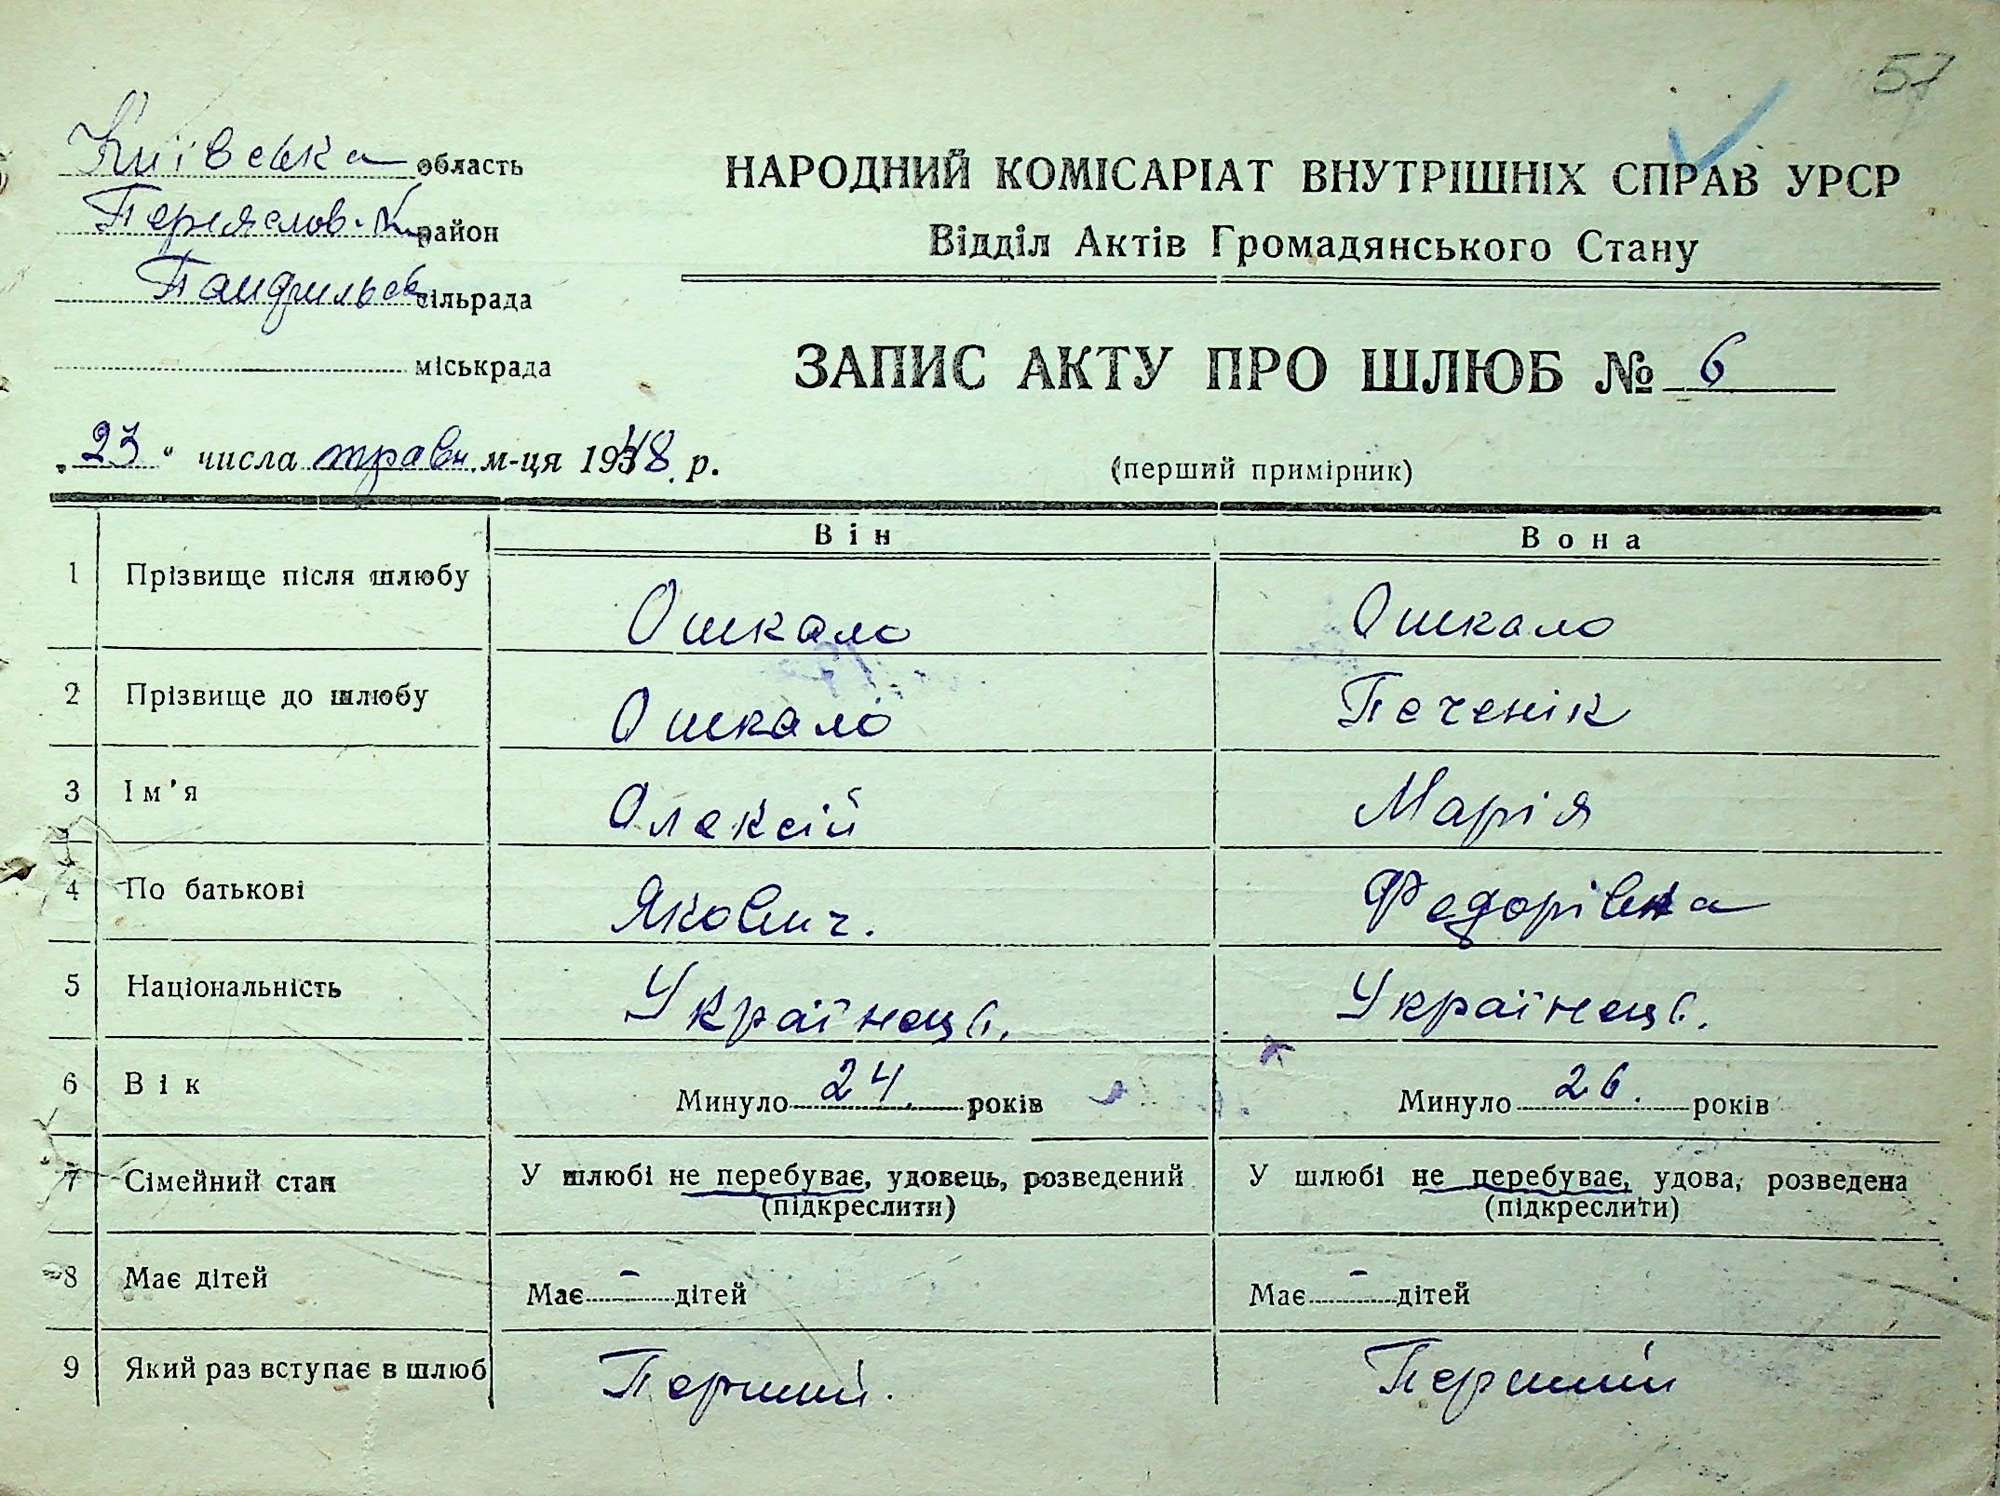 57
Київська область
Переяслов.-Х район
сільрада
міськрада
НАРОДНИЙ КОМІСАРІАТ ВНУТРІШНІХ СПРАВ УРСР
Відділ Актів Громадянського Стану
ЗАПИС АКТУ ПРО ШЛЮБ № 6
„23“ числа травн. м-ця 1948 р.
(перший примірник)
Він Вона
1 Прізвище після шлюбу Ошкало Ошкало
2 Прізвище до шлюбу Ошкало Печенік
3 Ім'я Олексій Марія
4 По батькові Якович. Федорівна
5 Національність Українець. Українець.
6 Вік Минуло 24. років Минуло 26. років
7 Сімейний стан У шлюбі не перебуває, удовець, розведений (підкреслити) У шлюбі не перебуває, удова, розведена (підкреслити)
8 Має дітей Має - дітей Має - дітей
9 Який раз вступає в шлюб Перший. Перший